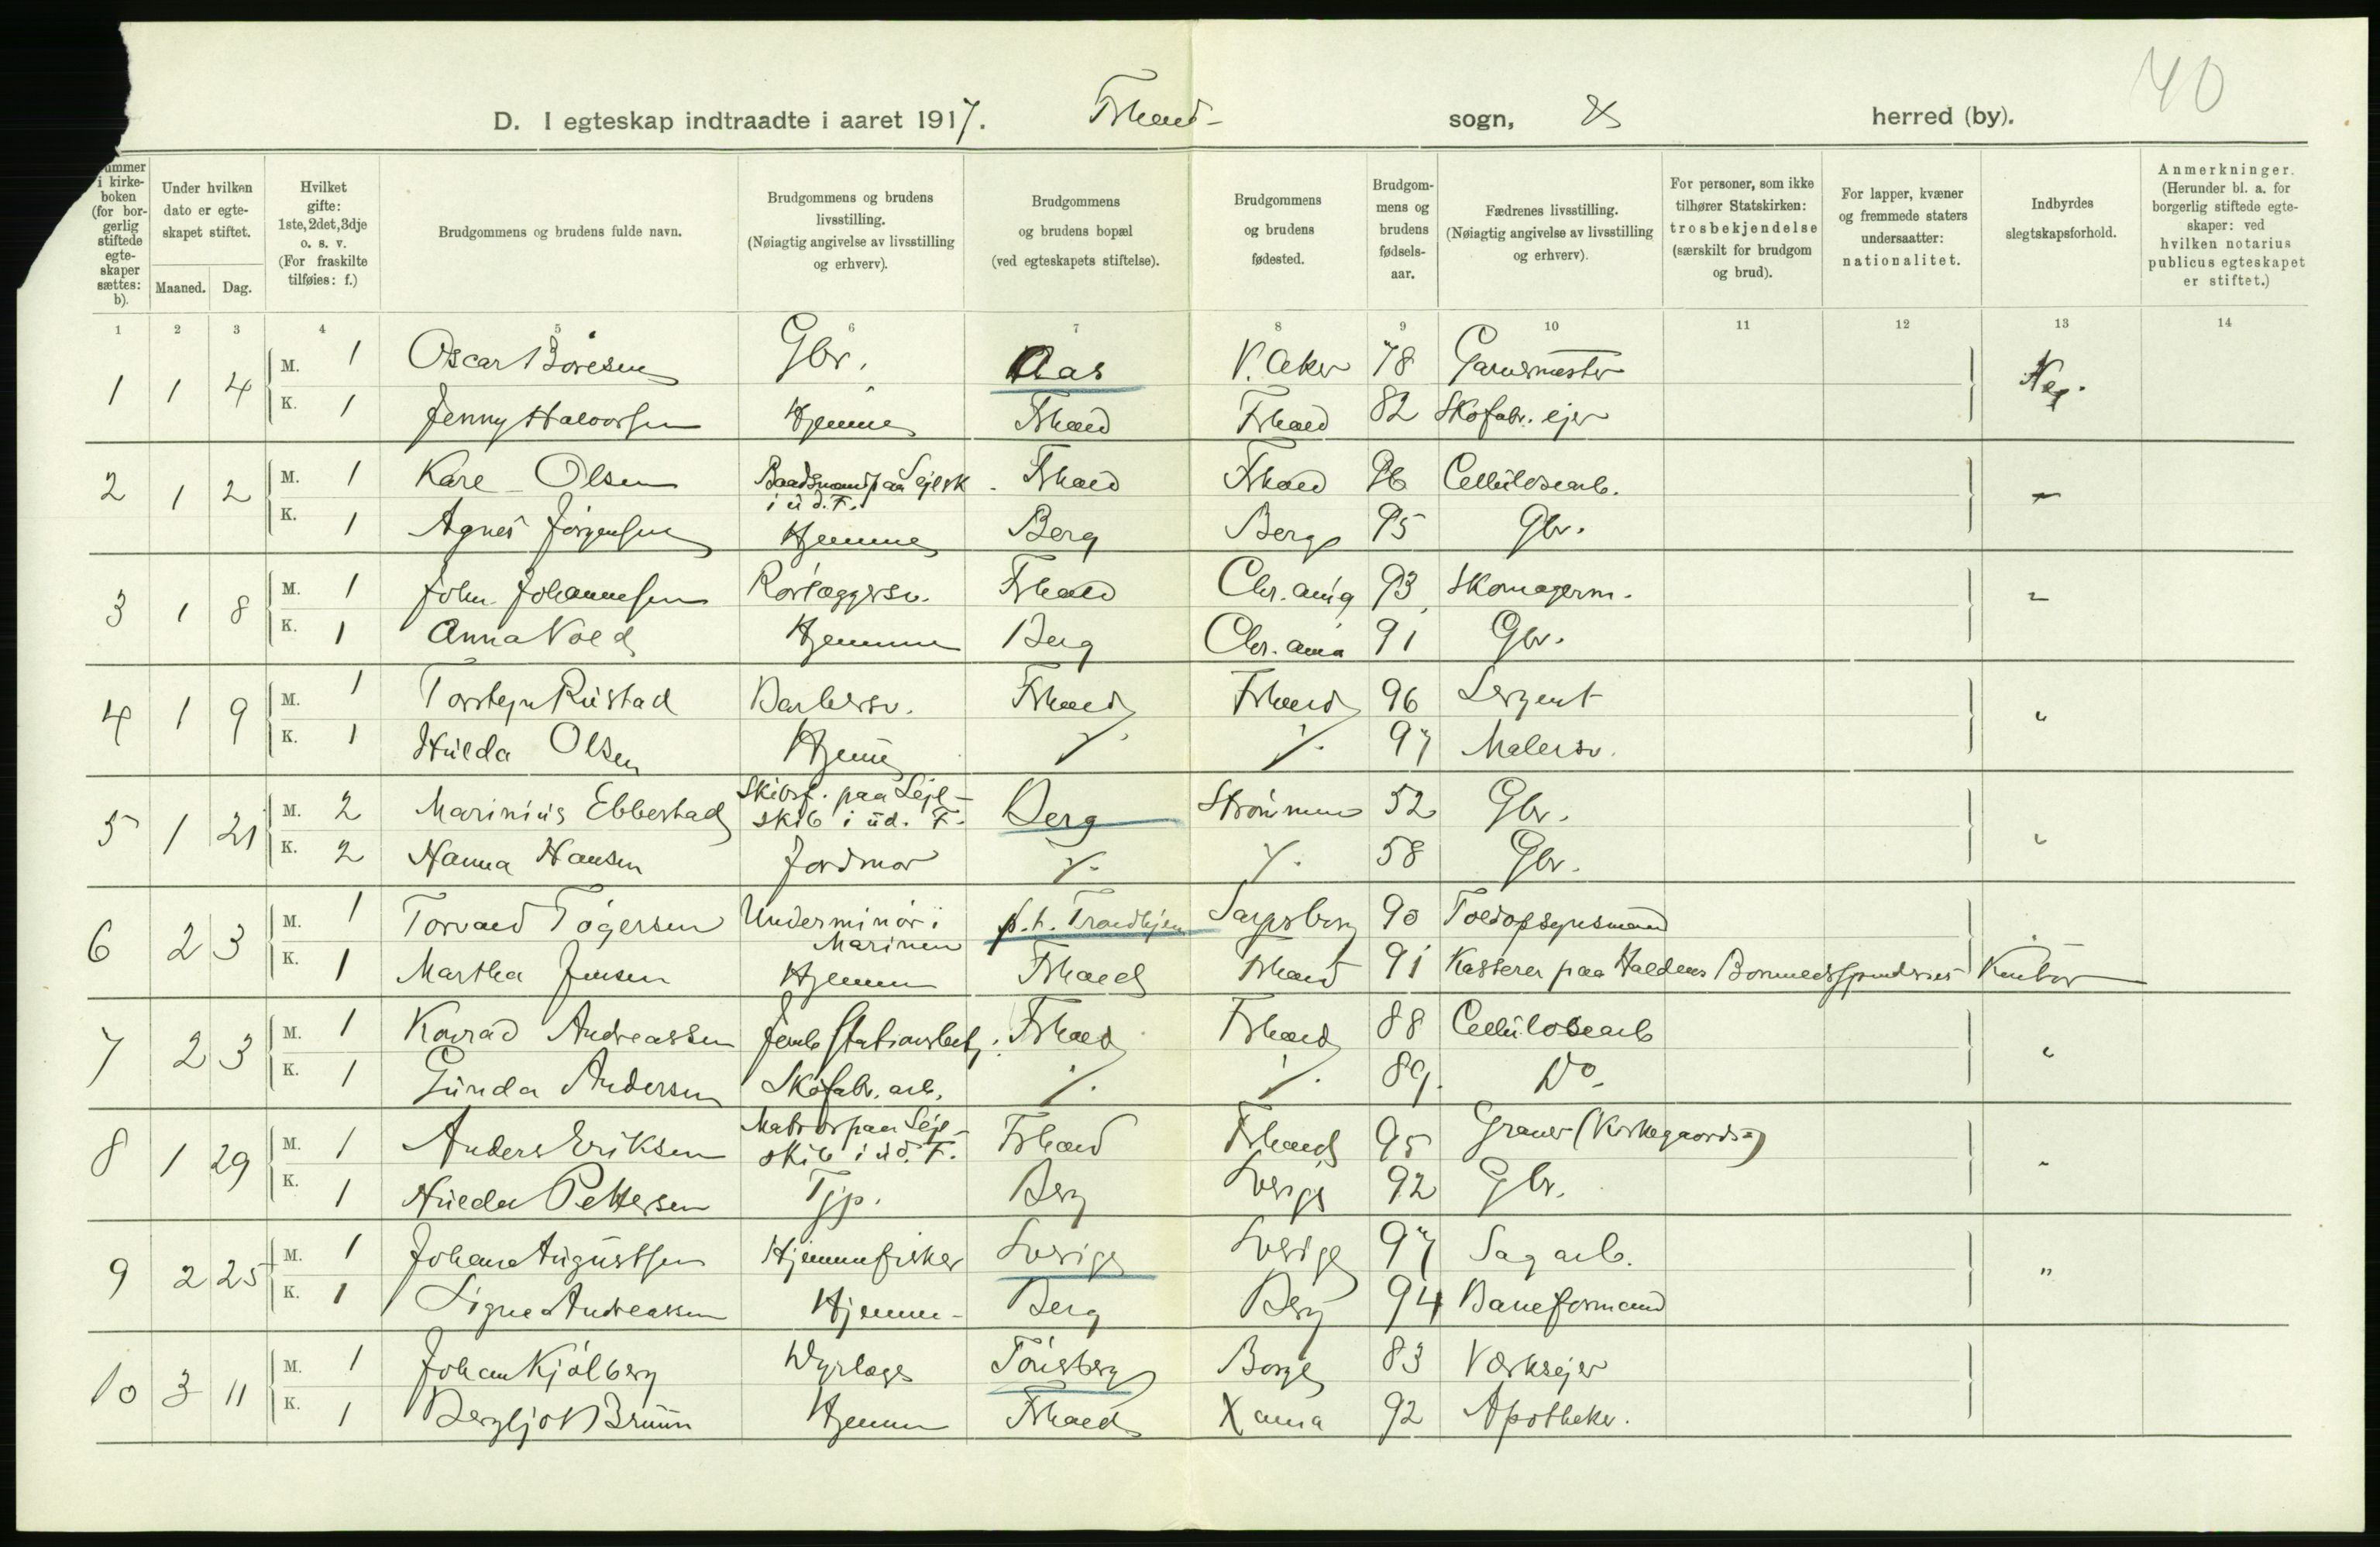 40
D. I egteskap indtraadte i aaret 1917. Fhald sogn, & herred (by).
ummer i kirke-boken (for bor-gerlig stiftede egte-skaper sættes: b).
Under hvilken dato er egte-skapet stiftet.
Maaned. Dag.
Hvilket gifte: 1ste, 2det, 3dje o. s. v. (For fraskilte tilføies: f.)
Brudgommens og brudens fulde navn.
Brudgommens og brudens livsstilling. (Nøiagtig angivelse av livsstilling og erhverv).
Brudgommens og brudens bopæl (ved egteskapets stiftelse).
Brudgommens og brudens fødested.
Brudgom-mens og brudens fødsels-aar.
Fædrenes livsstilling. (Nøiagtig angivelse av livsstilling og erhverv).
For personer, som ikke tilhører Statskirken: trosbekjendelse (særskilt for brudgom og brud).
For lapper, kvæner og fremmede staters undersaatter: nationalitet.
Indbyrdes slegtskapsforhold.
Anmerkninger. (Herunder bl. a. for borgerlig stiftede egte-skaper: ved hvilken notarius publicus egteskapet er stiftet.)
1 2 3 4 5 6 7 8 9 10 11 12 13 14
1 1 4 M. 1 Oscar Böresen Gbr. Aas V. Aker 78 Garvermester Neg.
K. 1 Jenny Halvorsen Hjemme Fhald Fhald 82 Skofabr. ejer
2 1 2 M. 1 Kåre Olsen Baadsmand paa Sejlsk i üd. F. Fhald Fhald 96 Cellülosearb. "
K. 1 Agnes Jörgensen Hjemme Berg Berg 95 Gbr.
3 1 8 M. 1 John Johannesen Rörlæggersv. Fhald Chr.ania 93 Skomagerm. "
K. 1 Anna Vold Hjemme Berg Chr.ania 91 Gbr.
4 1 9 M. 1 Torstejn Rüstad Barbersv. Fhald Fhald 96 Sergent "
K. 1 Hülda Olsen Hjemme ·/. ·/. 97 Malersv.
5 1 21 M. 2 Marinius Ebbestad Skibsf. paa Sejl-skib i üd. F. Berg Strömmen 52 Gbr. "
K. 2 Hanna Hansen Jordmor ·/. ·/. 58 Gbr.
6 2 3 M. 1 Torvald Tögersen Underminör i Marinen p.t. Trondhjem Sarpsborg 90 Toldopsynsmand
K. 1 Martha Jensen Hjemme Fhald Fhald 91 Kasserer paa Haldens Bomuldsspinderi
7 2 3 M. 1 Konrad Andreassen Jernb Stationsbetj. Fhald Fhald 88 Cellülosearb "
K. 1 Günda Andersen Skofabr. arb. ·/. ·/. 89. Do.
8 1 29 M. 1 Anders Eriksen Matros paa Sejl-skib i üd. F. Fhald Fhald 95 Graver (Kirkegaards-) "
K. 1 Hülda Pettersen Tjp. Berg Sverige 92 Gbr.
9 2 25 M. 1 Johan Augustsen Hjemmefisker Sverige Sverige 97 Sagarb. "
K. 1 Signe Andreasen Hjemme- Berg Berg 94 Baneformand
10 3 11 M. 1 Johan Kjölberg Dyrlæge Tönsberg Borge 83 Værksejer
K. 1 Bergljot Bruün Hjemme Fhald Xania 92 Apotheker.